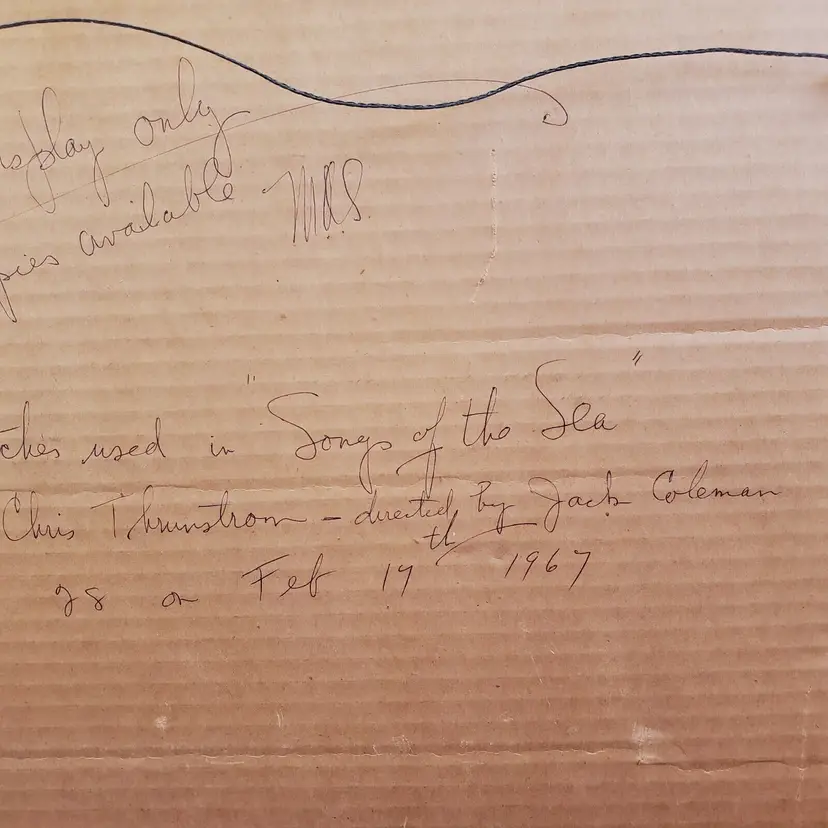 isplay only
pies available MAS.
tches used in "Songs of the Sea"
Chris Thrunstrom - directed by Jack Coleman
28 on Feb 17th 1967